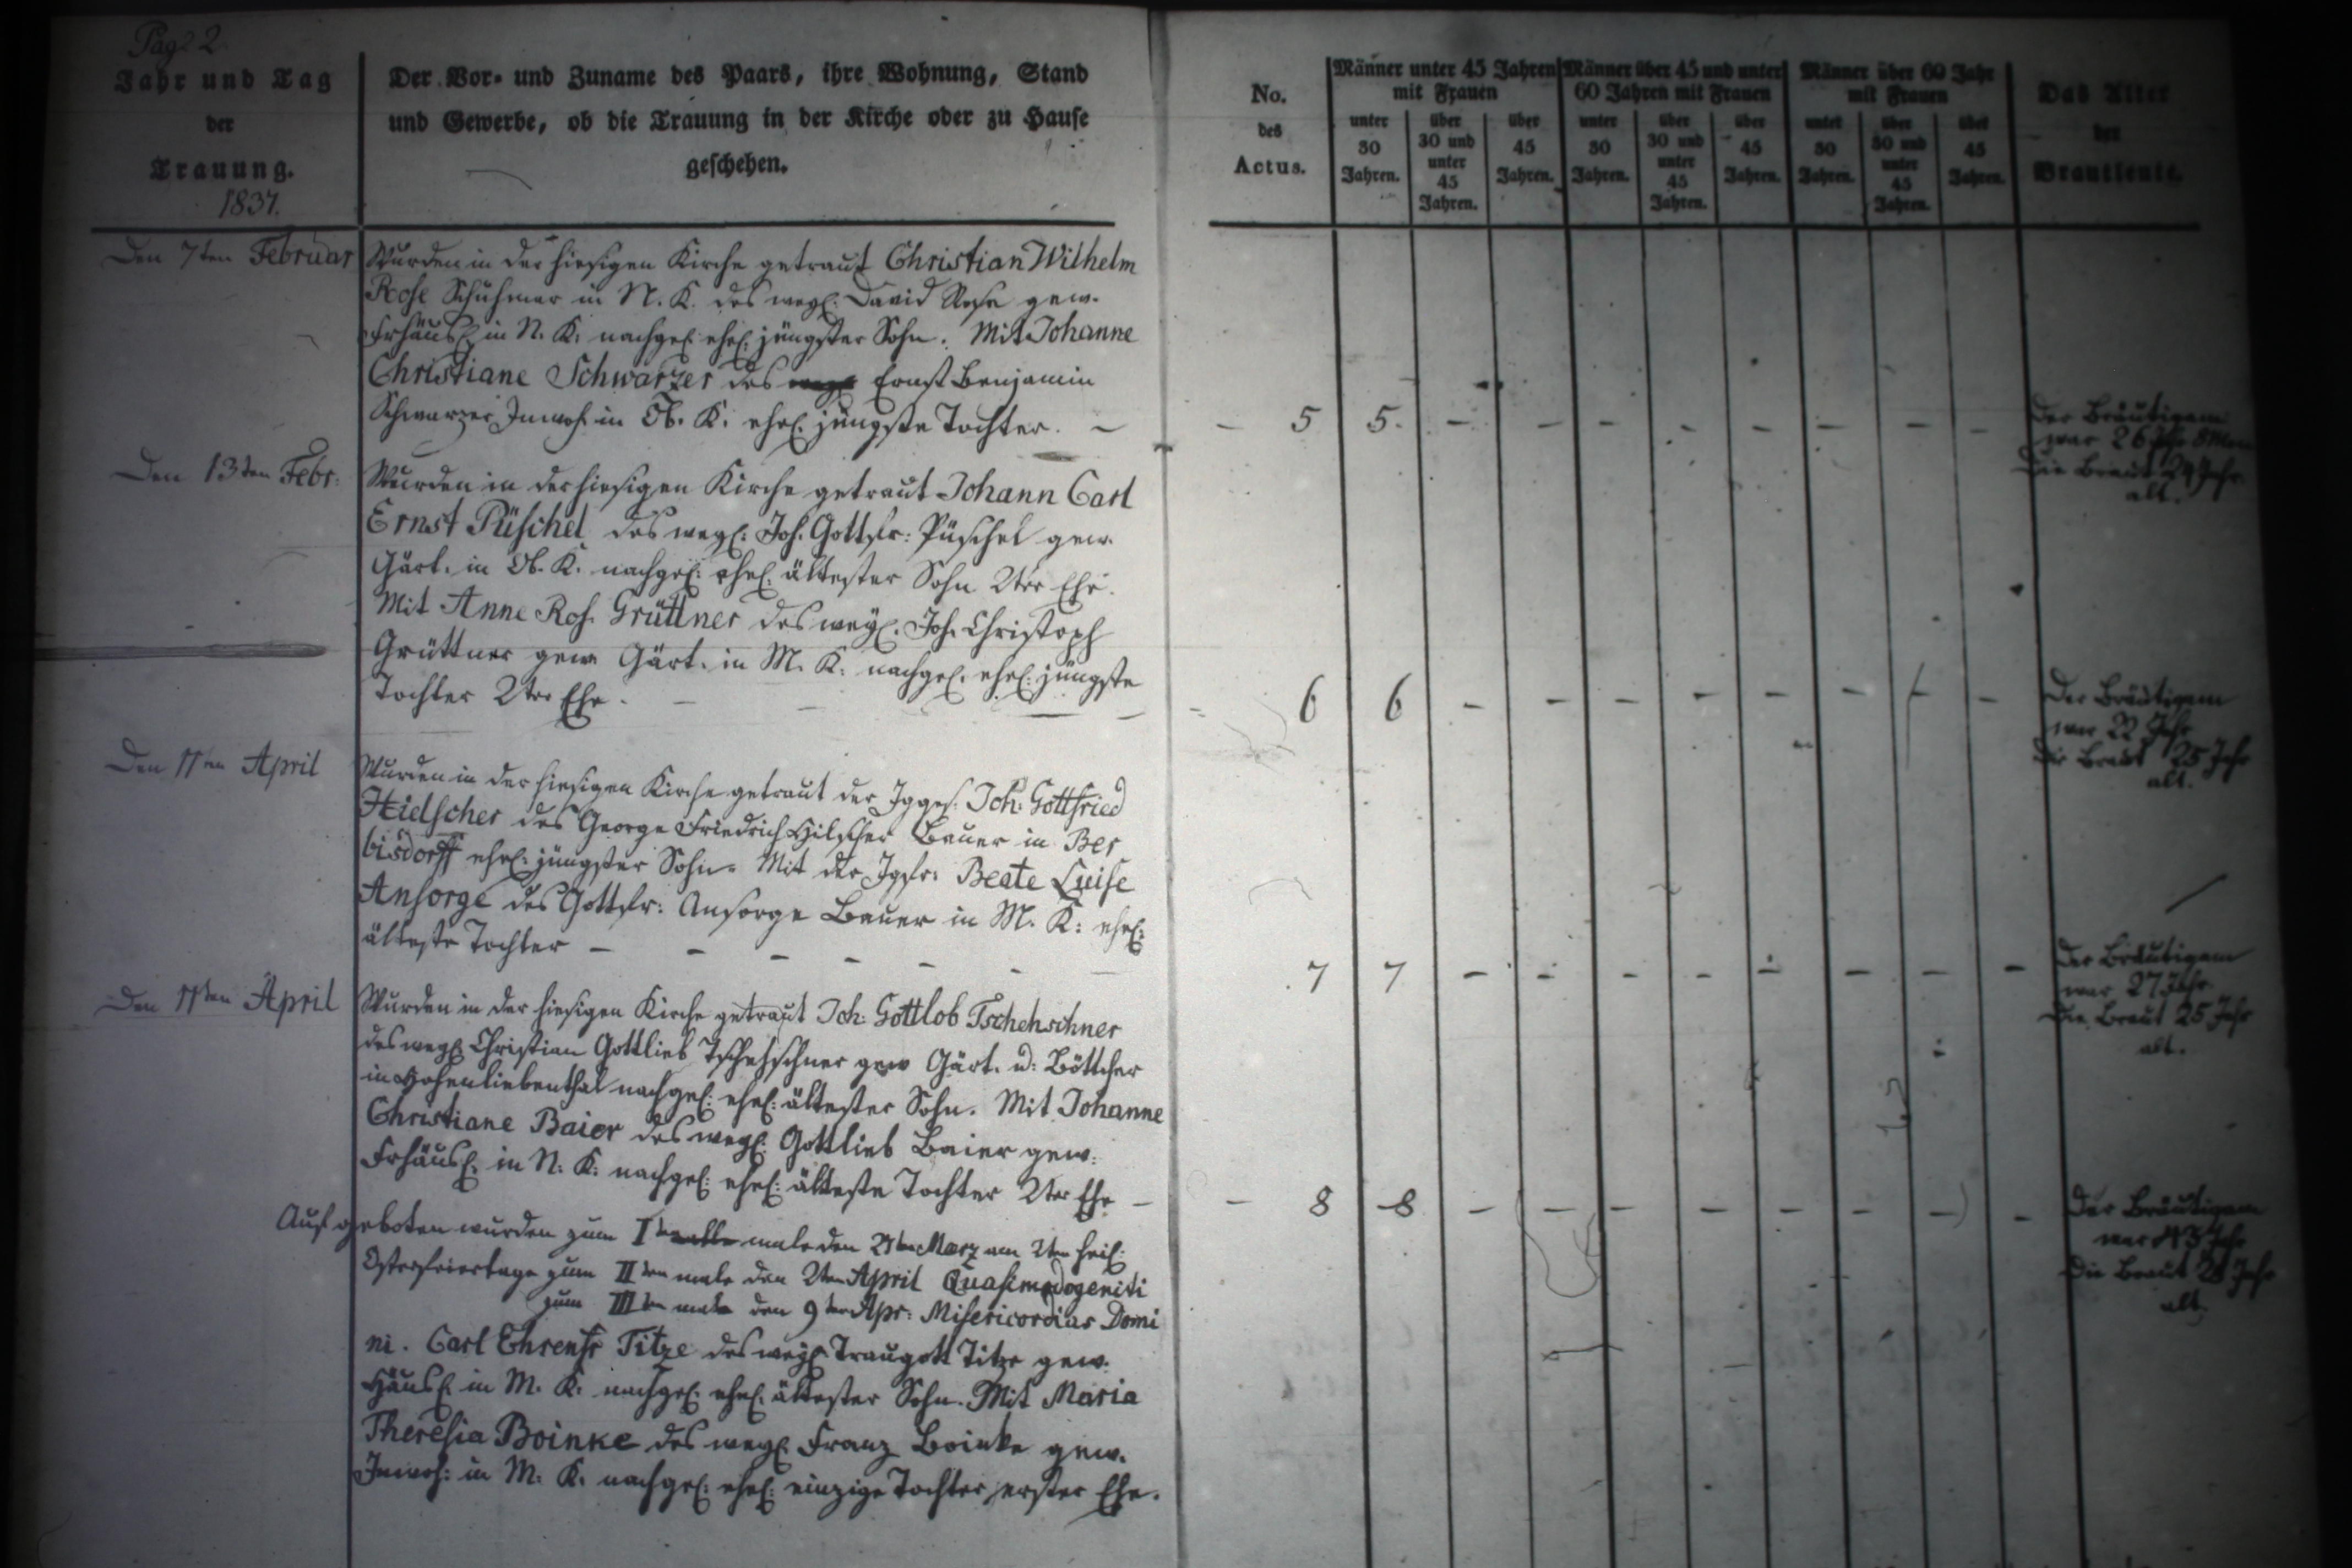 Pag. 2
Jahr und Tag
der
Trauung.
1837.
Der Vor- und Zuname des Paars, ihre Wohnung, Stand
und Gewerbe, ob die Trauung in der Kirche oder zu Hause
geschehen.
No.
des
Actus.
Männer unter 45 Jahren
mit Frauen
unter
30
Jahren.
über
30 und
unter
45
Jahren.
über
45
Jahren.
Männer über 45 und unter
60 Jahren mit Frauen
unter
30
Jahren.
über
30 und
unter
45
Jahren.
über
45
Jahren.
Männer über 60 Jahr
mit Frauen
unter
30
Jahren.
über
30 und
unter
45
Jahren.
über
45
Jahren.
Das Alter
der
Brautleute.
Den 7ten Februar
Wurden in der hiesigen Kirche getraut Christian Wilhelm
Rose Schuhmar in N. K. des wegl. David Rose gew.
Frhäusl. in N. K. nachgel. ehel. jüngster Sohn. Mit Johanne
Christiane Schwarzer des Ernst Benjamin
Schwarzer Inwoh. in Ob. K. ehel. jüngste Tochter. –
– 5 5. – – – – – – – –
Der Bräutigam
war 26 Jahr 8 Mon
Die Braut 24 Jahr
alt.
Den 13ten Febr:
Wurden in der hiesigen Kirche getraut Johann Carl
Ernst Püschel des wegl: Joh. Gottfr: Püschel gew.
Gärt. in Ob. K. nachgel: ehel. ältester Sohn 2ter Ehe.
Mit Anne Ros. Grüttner des wegl. Joh. Christoph
Grüttner gew. Gärt. in M. K: nachgel. ehel. jüngste
Tochter 2ter Ehe. – – – –
– 6 6 – – – – – – – –
Der Bräutigam
war 22 Jahr
Die Braut 25 Jahr
alt.
Den 11ten April
Wurden in der hiesigen Kirche getraut der Jgges. Joh: Gottfried
Hielscher des George Friedrich Hilscher Bauer in Ber
bisdorff ehel. jüngster Sohn. Mit der Jgfr: Beate Luise
Ansorge des Gottfr: Ansorge Bauer in M. K: ehel:
älteste Tochter – – – – – – –
7 7 – – – – – – – –
Der Bräutigam
war 27 Jahr
Die Braut 25 Jahr
alt.
Den 11ten April
Wurden in der hiesigen Kirche getraut Joh: Gottlob Tschehschner
des wegl. Christian Gottlieb Tschehschner gew Gärt. u: Böttcher
in Hohenliebenthal nachgel: ehel: ältester Sohn. Mit Johanne
Christiane Baier des wegl: Gottlieb Baier gew:
Frhäusl. in N: K: nachgel: ehel: älteste Tochter 2ter Ehe –
– 8 8 – – – – – – – –
Der Bräutigam
war Jahr
Die Braut Jahr
alt.
Aufgeboten wurden zum Iten male den März am 2ten heil:
Osterfeiertage zum IIten male den 2ten April Quasimodogeniti
zum IIIten male den 9ten Apr: Misericordias Domi
ni. Carl Ehrenfr Titze des wegl Traugott Titze gew.
Häusl. in M. K: nachgel: ehel. ältester Sohn. Mit Maria
Theresia Boinke des wegl. Franz Boinke gew.
Inwoh: in M: K: nachgel: ehel: einzige Tochter erster Ehe.